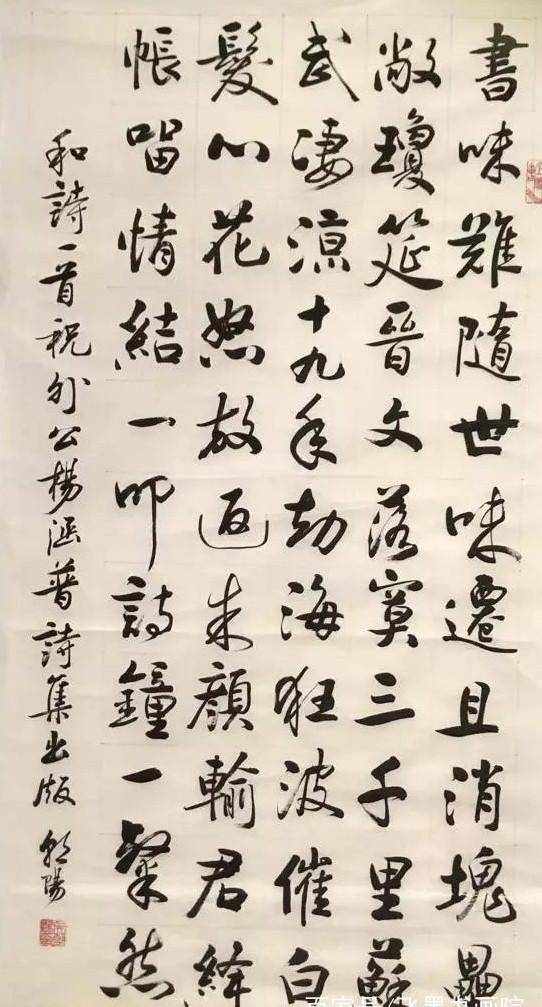 書味難隨世味遷且消塊壘
敞瓊筵晉文落寞三千里蘇
武淒涼十九年劫海狂波催白
髮心花怒放返朱顏輸君絳
帳留情結一叩詩鐘一粲然
和詩一首祝外公楊涵普詩集出版
百家号/墨书画院